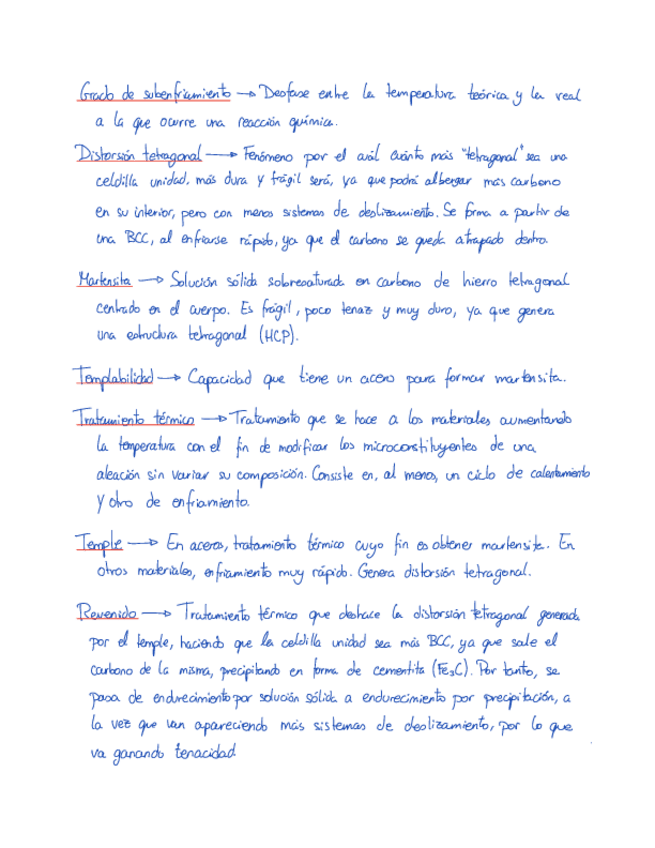 Grado de subenfriamiento → Desfase entre la temperatura teórica y la real
a la que ocurre una reacción química.
Distorsión tetragonal → Fenómeno por el cuál cuánto más "tetragonal" sea una
celdilla unidad, más dura y frágil será, ya que podrá albergar más carbono
en su interior, pero con menos sistemas de deslizamiento. Se forma a partir de
una BCC, al enfriarse rápido, ya que el carbono se queda atrapado dentro.
Martensita → Solución sólida sobresaturada en carbono de hierro tetragonal
centrado en el cuerpo. Es frágil, poco tenaz y muy duro, ya que genera
una estructura tetragonal (HCP).
Templabilidad → Capacidad que tiene un acero para formar martensita.
Tratamiento térmico → Tratamiento que se hace a los materiales aumentando
la temperatura con el fin de modificar los microconstituyentes de una
aleación sin variar su composición. Consiste en, al menos, un ciclo de calentamiento
y otro de enfriamiento.
Temple → En aceros, tratamiento térmico cuyo fin es obtener martensita. En
otros materiales, enfriamiento muy rápido. Genera distorsión tetragonal.
Revenido → Tratamiento térmico que deshace la distorsión tetragonal generada
por el temple, haciendo que la celdilla unidad sea más BCC, ya que sale el
carbono de la misma, precipitando en forma de cementita (Fe₃C). Por tanto, se
pasa de endurecimiento por solución sólida a endurecimiento por precipitación, a
la vez que van apareciendo más sistemas de deslizamiento, por lo que
va ganando tenacidad